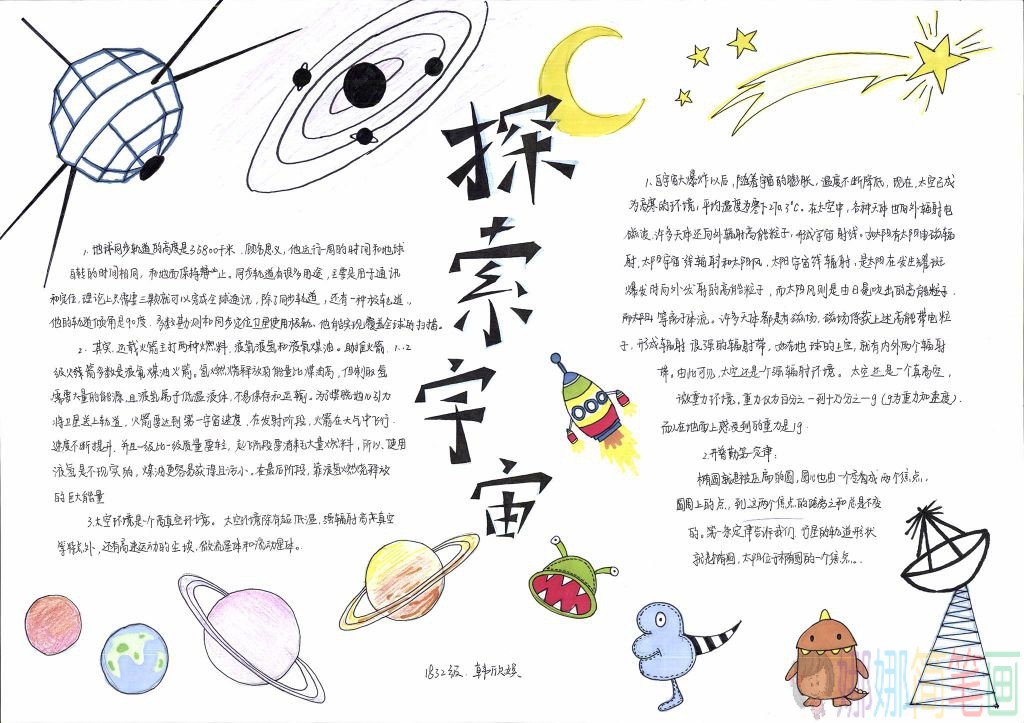 探索宇宙
1. 地球同步轨道的高度是35800千米. 顾名思义, 他运行一周的时间和地球
自转的时间相同, 和地面保持静止. 同步轨道有很多用途, 主要是用于通讯
和定位. 理论上只需要三颗就可以完成全球通讯, 除了同步轨道, 还有一种极轨道.,
他的轨道倾角是90度, 多数勘测和同步定位卫星使用极轨. 他能实现覆盖全球的扫描.
2. 其实, 运载火箭主打两种燃料, 液氧液氢和液氧煤油. 助推火箭. 1. 2
级火箭多数是液氧煤油火箭. 氢燃烧释放的能量比煤油高, 但制取氢
需要大量的能源, 且液氢属于低温液体, 不易保存和运输. 为摆脱地心引力
将卫星送上轨道, 火箭要达到第一宇宙速度, 在发射阶段, 火箭在大气中飞行.
速度不断提升, 并且一级比一级质量要轻, 起飞阶段要消耗大量燃料, 所以, 使用
液氢是不现实的, 煤油更容易获得且污小. 在最后阶段, 靠液氢燃烧释放
的巨大能量
3.太空环境是一个高真空环境。太空环境除有超低温, 强辐射高真空
等特点外, 还有高速运动的尘埃, 微流星体和流动星体。
1. 自宇宙大爆炸以后, 随着宇宙的膨胀, 温度不断降低, 现在, 太空已成
为高寒的环境, 平均温度为零下270.3℃. 在太空中, 各种天体也向外辐射电
磁波, 许多天体还向外辐射高能粒子, 形成宇宙射线. 如太阳有太阳电磁辐
射, 太阳宇宙线辐射和太阳风, 太阳宇宙线辐射, 是太阳在发生耀斑
爆发时向外发射的高能粒子, 而太阳风则是由日冕吹出的高能粒子.
等离子体流。许多天体都有磁场, 磁场俘获上述高能带电粒
子, 形成辐射很强的辐射带, 如在地球的上空, 就有内外两个辐射
带. 由此可见, 太空还是一个强辐射环境。太空还是一个真高空,
微重力环境. 重力仅为百分之一到十万分之一g (g为重力加速度).
而人在地面上感受到的重力是1g.
2.开普勒第一定律:
椭圆就是被压扁的圆, 圆心也由一个变成两个焦点.,
圆周上的点, 到这两个焦点的距离之和总是不变
的。第一条定律告诉我们. 行星的轨道形状
就是椭圆, 太阳位于椭圆的一个焦点.。
1832级. 韩欣媛
娜娜简笔画